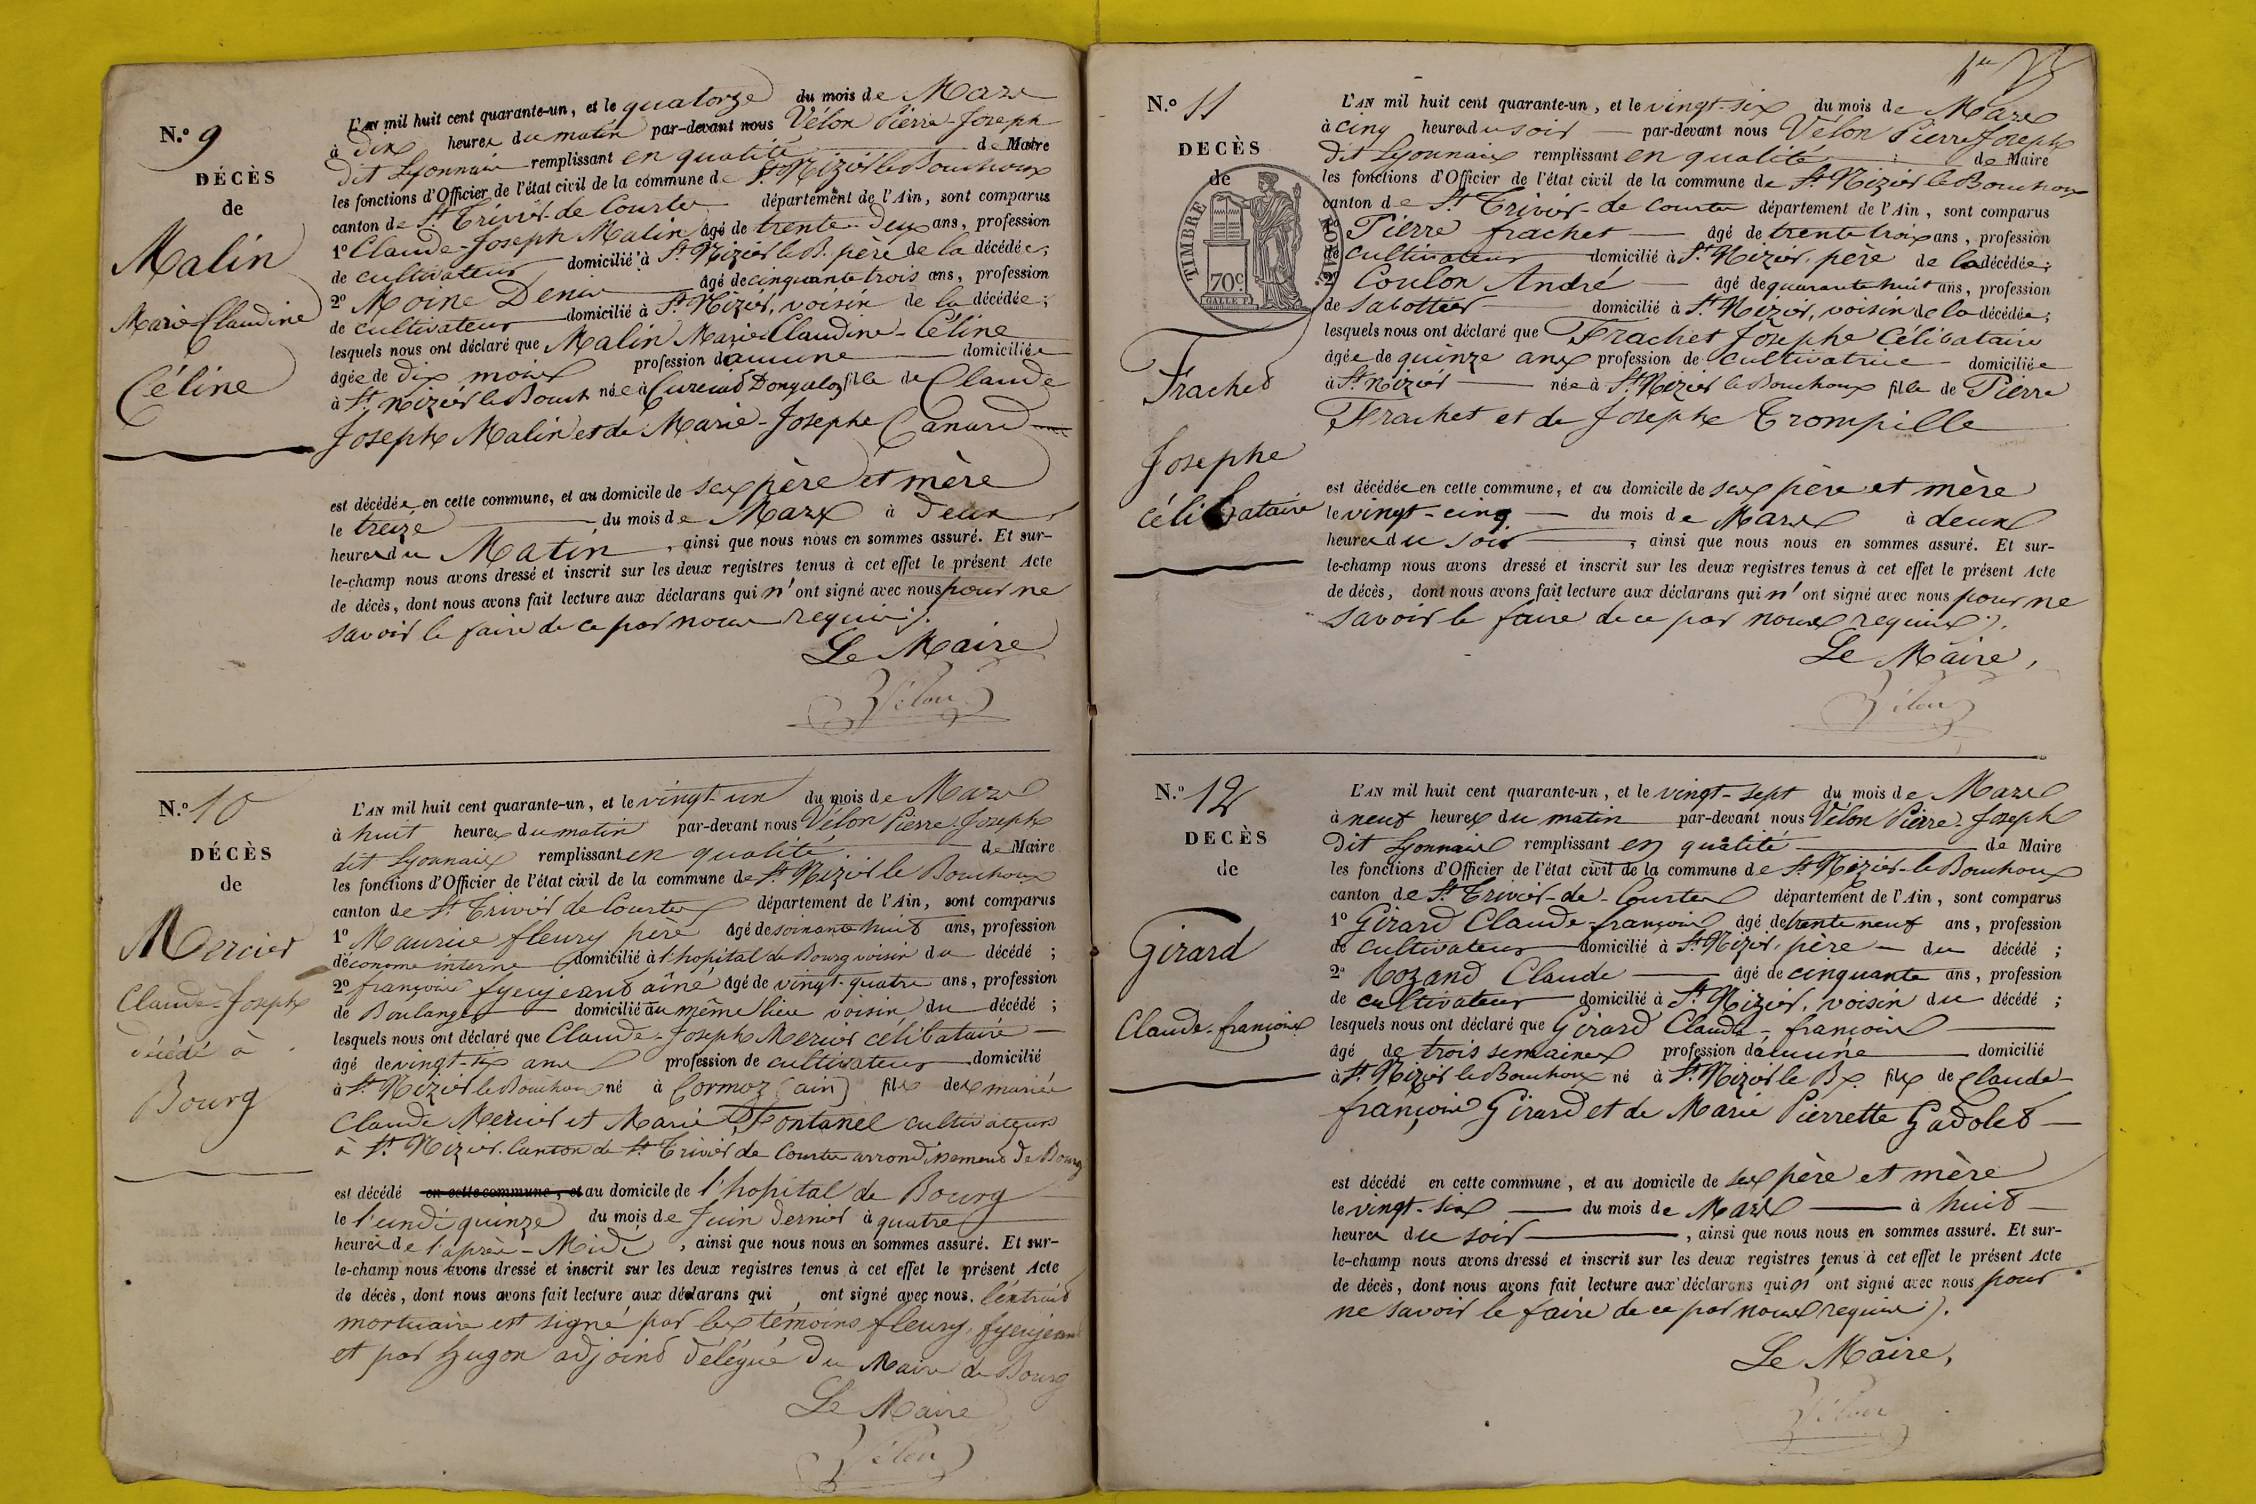 N.º 9
DÉCÈS
de
Malin
Marie Claudine
Céline
L'AN mil huit cent quarante-un, et le quatorze du mois de Mars
à dix heures du matin par-devant nous Vélon Pierre-Joseph
dit Lyonnais remplissant en qualité de Maire
les fonctions d'Officier de l'état civil de la commune de St Nizier le Bouchoux
canton de St Trivier-de Courtes département de l'Ain, sont comparus
1º Claude-Joseph Malin âgé de trente-deux ans, profession
de cultivateur domicilié à St Nizier le B. père de la décédée;
2º Moine Denis âgé de cinquante trois ans, profession
de cultivateur domicilié à St Nizier, voisin de la décédée;
lesquels nous ont déclaré que Malin Marie Claudine-Céline
âgée de dix mois profession d'aucune domiciliée
à St Nizier le Bouch née à Curciat Dongalon fille de Claude
Joseph Malin et de Marie-Josephe Canard
est décédée en cette commune, et au domicile de ses père et mère
le treize du mois de Mars à deux
heures du Matin, ainsi que nous nous en sommes assuré. Et sur-
le-champ nous avons dressé et inscrit sur les deux registres tenus à cet effet le présent Acte
de décès, dont nous avons fait lecture aux déclarans qui n'ont signé avec nous pour ne
savoir le faire de ce par nous requis).
Le Maire
Vélon
N.º 10
DÉCÈS
de
Mercier
Claude-Joseph
décédé à
Bourg
L'AN mil huit cent quarante-un, et le vingt-un du mois de Mars
à huit heures du matin par-devant nous Vélon Pierre-Joseph
dit Lyonnais remplissant en qualité de Maire
les fonctions d'Officier de l'état civil de la commune de St Nizier le Bouchoux
canton de St Trivier de Courtes département de l'Ain, sont comparus
1º Maurice fleury père âgé de soixante huit ans, profession
d'économe interne domicilié à l'hopital de Bourg voisin du décédé;
2º françois fyeujeant aîné âgé de vingt-quatre ans, profession
de Boulanger domicilié au même lieu voisin du décédé;
lesquels nous ont déclaré que Claude-Joseph Mercier célibataire
âgé de vingt-six ans profession de cultivateur domicilié
à St Nizier le Bouchoux né à Cormoz (ain) fils des mariés
Claude Mercier et Marie Fontanel cultivateurs
à St Nizier. Canton de St Trivier de Courtes arrondissement de Bourg
est décédé en cette commune, et au domicile de l'hopital de Bourg
le lundi quinze du mois de Juin dernier à quatre
heures de l'après-Midi, ainsi que nous nous en sommes assuré. Et sur-
le-champ nous avons dressé et inscrit sur les deux registres tenus à cet effet le présent Acte
de décès, dont nous avons fait lecture aux déclarans qui ont signé avec nous. l'extrait
mortuaire est signé par les témoins fleury, fyeujeant
et par hugon adjoint délégué du Maire de Bourg
Le Maire
Vélon
N.º 11
DÉCÈS
de
TIMBRE ROYAL
70c
Frachet
Josephe
célibataire
L'AN mil huit cent quarante-un, et le vingt-six du mois de Mars
à cinq heures du soir par-devant nous Vélon Pierre Joseph
dit Lyonnais remplissant en qualité de Maire
les fonctions d'Officier de l'état civil de la commune de St Nizier le Bouchoux
canton de St Trivier-de Courtes département de l'Ain, sont comparus
Pierre frachet âgé de trente trois ans, profession
de cultivateur domicilié à St Nizier, père de la décédée;
2º Coulon André âgé de quarante huit ans, profession
de sabottier domicilié à St Nizier, voisin de la décédée;
lesquels nous ont déclaré que Frachet Josephe Célibataire
âgée de quinze ans profession de cultivatrice domiciliée
à St Nizier née à St Nizier le Bouchoux fille de Pierre
Frachet et de Josephe Trompille
est décédée en cette commune, et au domicile de ses père et mère
le vingt-cinq du mois de Mars à deux
heures du soir, ainsi que nous nous en sommes assuré. Et sur-
le-champ nous avons dressé et inscrit sur les deux registres tenus à cet effet le présent Acte
de décès, dont nous avons fait lecture aux déclarans qui n'ont signé avec nous pour ne
savoir le faire de ce par nous requis).
Le Maire,
Vélon
N.º 12
DÉCÈS
de
Girard
Claude-françois
L'AN mil huit cent quarante-un, et le vingt-sept du mois de Mars
à neuf heures du matin par-devant nous Vélon Pierre-Joseph
dit Lyonnais remplissant en qualité de Maire
les fonctions d'Officier de l'état civil de la commune de St Nizier-le Bouchoux
canton de St Trivier-de-Courtes département de l'Ain, sont comparus
1º Girard Claude-françois âgé de trente neuf ans, profession
de cultivateur domicilié à St Nizier, père du décédé;
2º Rozand Claude âgé de cinquante ans, profession
de cultivateur domicilié à St Nizier, voisin du décédé;
lesquels nous ont déclaré que Girard Claude-françois
âgé de trois semaines profession d'aucune domicilié
à St Nizier le Bouchoux né à St Nizier le Bx. fils de Claude-
françois Girard et de Marie Pierrette Gadolet
est décédé en cette commune, et au domicile de ses père et mère
le vingt-six du mois de Mars à huit
heures du soir, ainsi que nous nous en sommes assuré. Et sur-
le-champ nous avons dressé et inscrit sur les deux registres tenus à cet effet le présent Acte
de décès, dont nous avons fait lecture aux déclarans qui n'ont signé avec nous pour
ne savoir le faire de ce par nous requis).
Le Maire,
Vélon